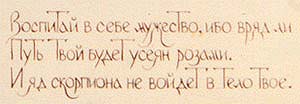 Воспитай в себе мужество, ибо вряд ли
Путь Твой будет усеян розами.
И яд скорпиона не войдет в Тело Твое.